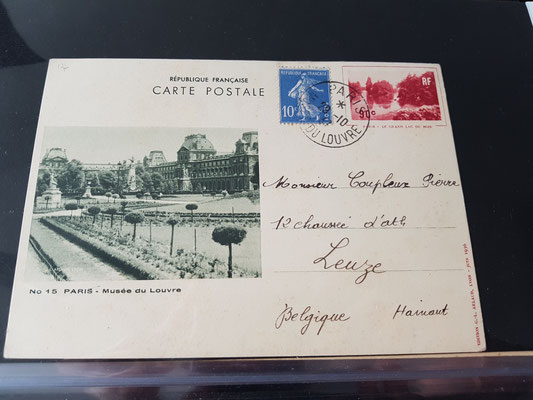 RÉPUBLIQUE FRANÇAISE
CARTE POSTALE
10c
PARIS
DU LOUVRE
RF
90c
PARIS - LE GRAND LAC DU BOIS
Monsieur Coupleux Pierre
12 chaussée d'ath
Leuze
Belgique Hainaut
No 15 PARIS - Musée du Louvre